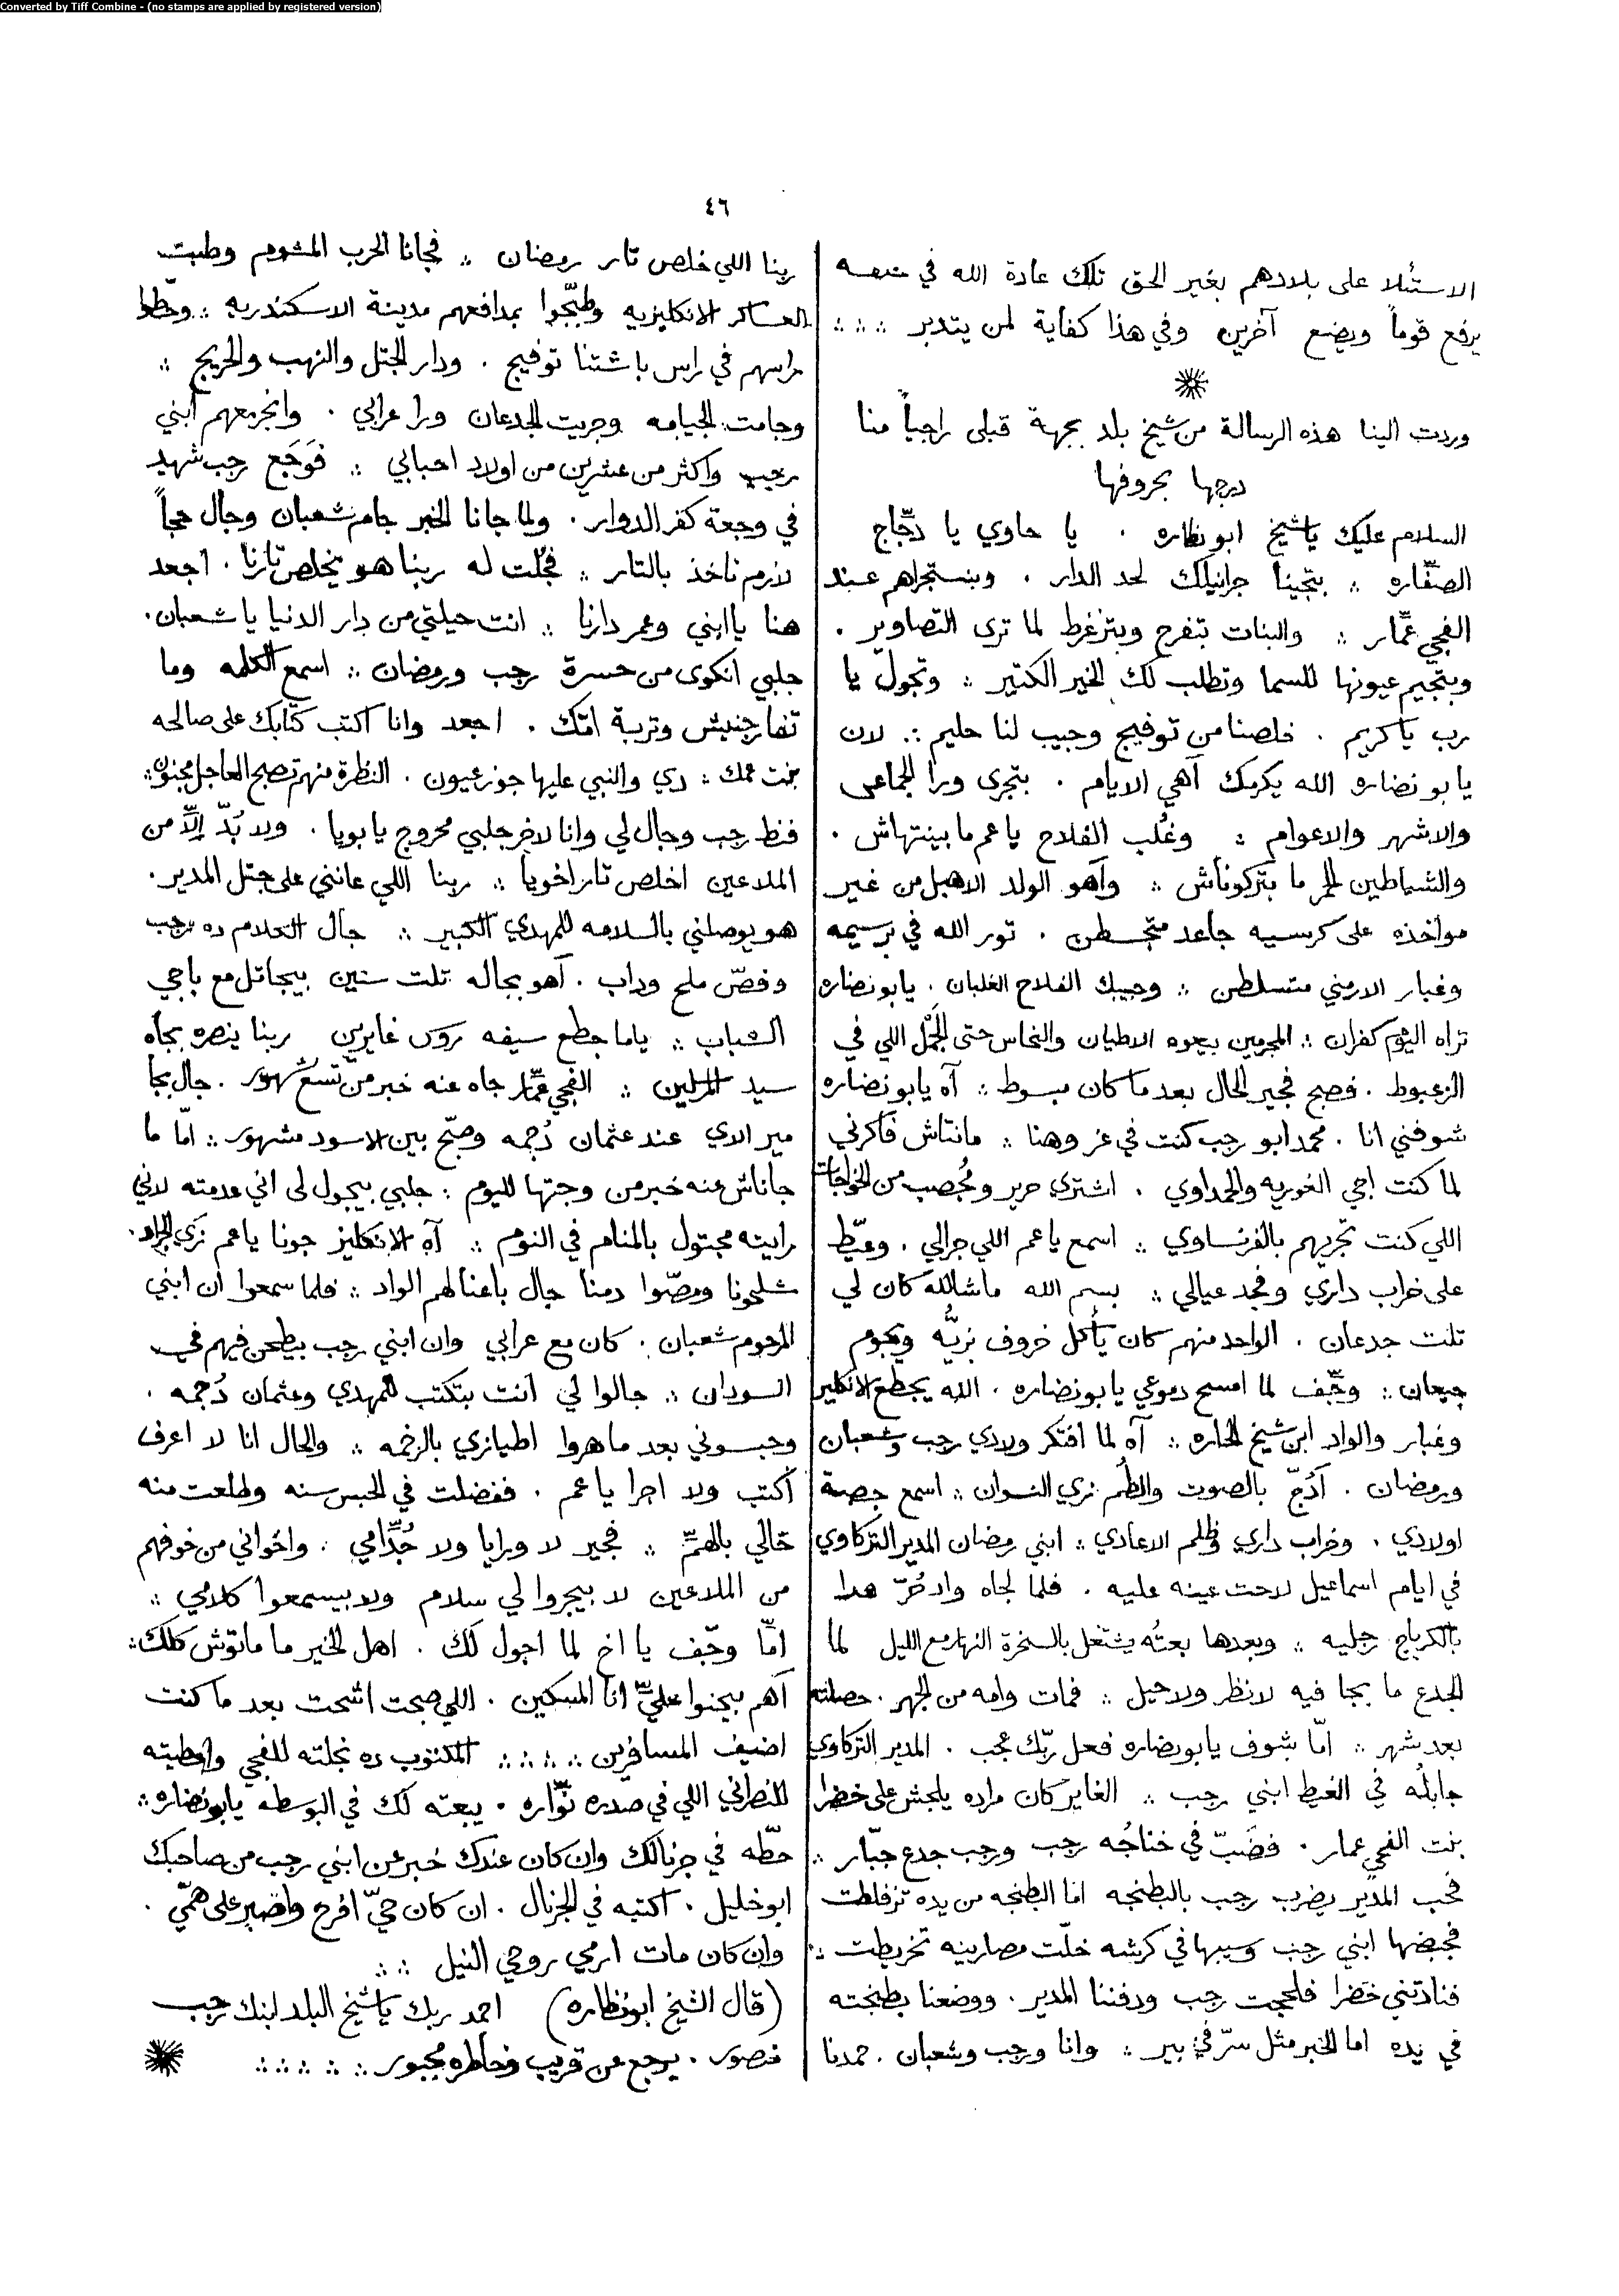 Converted by Tiff Combine - (no stamps are applied by registered version)
٤٦
الاستئلا على بلادهم بغير الحق تلك عادة الله في خلقه
يرفع قوماً ويضع آخرين وفي هذا كفاية لمن يتدبر ؞ ؞
وردت الينا هذه الرسالة من شيخ بلد بجهة قبلى راجياً منا
درجها بحروفها
السلام عليك يا شيخ ابو نظاره . يا حاوي يا دجّاج
الصفّاره ؞ بتجينا جرانيلك لحد الدار . وبنستجراهم عند
الفجي عمّار ؞ والبنات بتفرح وبتزغرط لما ترى التصاوير .
وبتجيم عيونها للسما وتطلب لك الخير الكتير ؞ وتجول يا
رب يا كريم . خلصنا من توفيج وجيب لنا حليم ؞ لان
يا بو نضاره الله يكرمك آهي الايام . بتجرى ورا الجماعى
والاشهر والاعوام ؞ وغُلب الفلاح يا عم ما بينتهاش .
والشياطين الحمر ما بتتركوناش ؞ وآهو الولد الاهبل من غير
مواخذه على كرسيه جاعد متجسطن . تور الله في برسيمه
وغبار الارمني متسلطن ؞ وجيبك الفلاح الغلبان . يا بو نضاره
تراه اليوم كفران ؞ المجرمين بيعوه الاطيان والنحاس حتى الجَمَل اللي في
الزعبوط . فصبح فجير الحال بعد ما كان مبسوط ؞ آه يا بو نضاره
شوفني انا . محمد ابو رجب كنت في عز وهنا ؞ مانتاش فاكرني
لما كنت اجي الغوريه والحمداوي . اشتري حرير ومُجصب من الخواجات
اللي كنت تجريهم بالفرنساوي ؞ اسمع يا عم اللي جرالي . وعيّط
على خراب داري وفجد عيالي ؞ بسم الله ماشالله كان لي
تلت جدعان . الواحد منهم كان يأكل خروف بزيُّه ويجوم
جيعان ؞ وجّف لما امسح دموعي يا بو نضاره . الله يجطع الانكليز
وغبار والواد ابن شيخ الحاره ؞ آه لما افتكر ولادي رجب وشعبان
ورمضان . آدُجّ بالصوت والطُم زي النسوان ؞ اسمع جصة
اولادي . وخراب داري وظلم الاعادي ؞ ابني رمضان المدير التركاوي
في ايام اسماعيل لاحت عينه عليه . فلما لجاه واد حُرّ هدا
بالكرباج رجليه ؞ وبعدها بعتُه يشتغل بالسخرة النهار مع الليل لما
الجدع ما بجا فيه لا نظر ولا حيل ؞ فمات وامه من الجهر . حصلته
بعد شهر ؞ امّا شوف يا بو نضاره فعل ربّك عجب . المدير التركاوي
جابلُه في الغيط ابني رجب ؞ الغاير كان مراده يلجش على خضرا
بنت الفجي عمار . فضَبّ في خناجُه رجب ورجب جدع جبّار ؞
فحب المدير يضرب رجب بالبطنجه اما البطنجه من يده تزفلطت
فجبضها ابني رجب وسيبها في كرشه خلّت مصارينه تخريطت ؞
فنادتني خضرا فلحجت رجب ودفننا المدير . ووضعنا بطنجته
في يده اما الخبر مثل سرّ في بير ؞ وانا ورجب وشعبان . حمدنا
ربنا اللي خلص تار رمضان ؞ فجانا الحرب المشوم وطبت
العساكر الانكليزيه وطبّجوا بمدافعهم مدينة الاسكندريه ؞ وحطوا
راسهم في راس باشتنا توفيج . ودار الجتل والنهب والحريج ؞
وجامت الجيامه وجريت الجدعان ورا عرابي . وانجر معهم ابني
رجب واكثر من عشرين من اولاد احبابي ؞ فوَجَع رجب شهيد
في وجعة كفر الدوار . ولما جانا الخبر جام شعبان وجال حجاً
لازم ناخذ بالتار ؞ فجُلت له ربنا هو يخلص تارنا . اجعد
هنا يا ابني وعمر دارنا ؞ انت حيلتي من دار الدنيا يا شعبان .
جلبي انكوى من حسرة رجب ورمضان ؞ اسمع الكلمه وما
تفارجنيش وتربة امّك . اجعد وانا اكتب كتابك على صالحه
بنت عمك ؞ دي والنبي عليها جوز عيون . النظرة منهم تصبح العاجل مجنون ؞
فنط رجب وجال لي وانا لاخر جلبي محروج يا بويا . ولا بُدّ إلاّ من
الملاعين اخلص تار اخويا ؞ ربنا اللي عانني على جتل المدير .
هو يوصلني بالسلامه للمهدي الكبير ؞ جال الكلام ده رجب
وفصّ ملح وداب . آهو بجاله تلت سنين بيجاتل مع باجي
الشباب ؞ ياما جطع سيفه روس غايرين ربنا ينصره بجاه
سيد المرسلين ؞ الفجي عمّار جاه عنه خبر من تسع شهور . جال بجا
مير الاي عند عثمان دُجمه وصبّح بين الاسود مشهور ؞ امّا ما
جاناش عنه خبر من وجتها لليوم ؞ جلبي بيجول لى اني عدمته لاني
رايته مجتول بالمنام في النوم ؞ آه الانكليز جونا يا عم زي الجراد .
شلحونا ومصّوا دمنا جال باعنا لهم الواد ؞ فلما سمعوا ان ابني
المرحوم شعبان . كان مع عرابي وان ابني رجب بيطحن فيهم في
السودان ؞ جالوا لي انت بتكتب للمهدي وعثمان دُجمه .
وحبسوني بعد ما هروا اطيازي بالرخمه ؞ والحال انا لا اعرف
أكتب ولا اجرا يا عم . ففضلت في الحبس سنه وطلعت منه
خالي بالهمّ ؞ فجير لا ورايا ولا جُدّامي . واخواني من خوفهم
من الملاعين لا بيجروا لي سلام ولا بيسمعوا كلامي ؞
امّا وجّف يا اخ لما اجول لك . اهل الخير ما ماتوش كلك ؞
آهم بيحنوا عليّ انا المسكين . اللي صبحت اشحت بعد ما كنت
اضيف المسافرين ؞ ؞ المكتوب ده نجلته للفجي واعطيته
للنصراني اللي في صدره نوّاره . يبعته لك في البوسطه يا بو نضاره ؞
حطّه في جرنالك وان كان عندك خبر عن ابني رجب من صاحبك
ابو خليل . اكتبه في الجرنال . ان كان حيّ افرح واصبر على همّي .
وان كان مات ارمي روحي النيل ؞
(قال الشيخ ابو نظاره) احمد ربك يا شيخ البلد ابنك رجب
منصور . يرجع من قريب وخاطره مجبور ؞ ؞ ؞